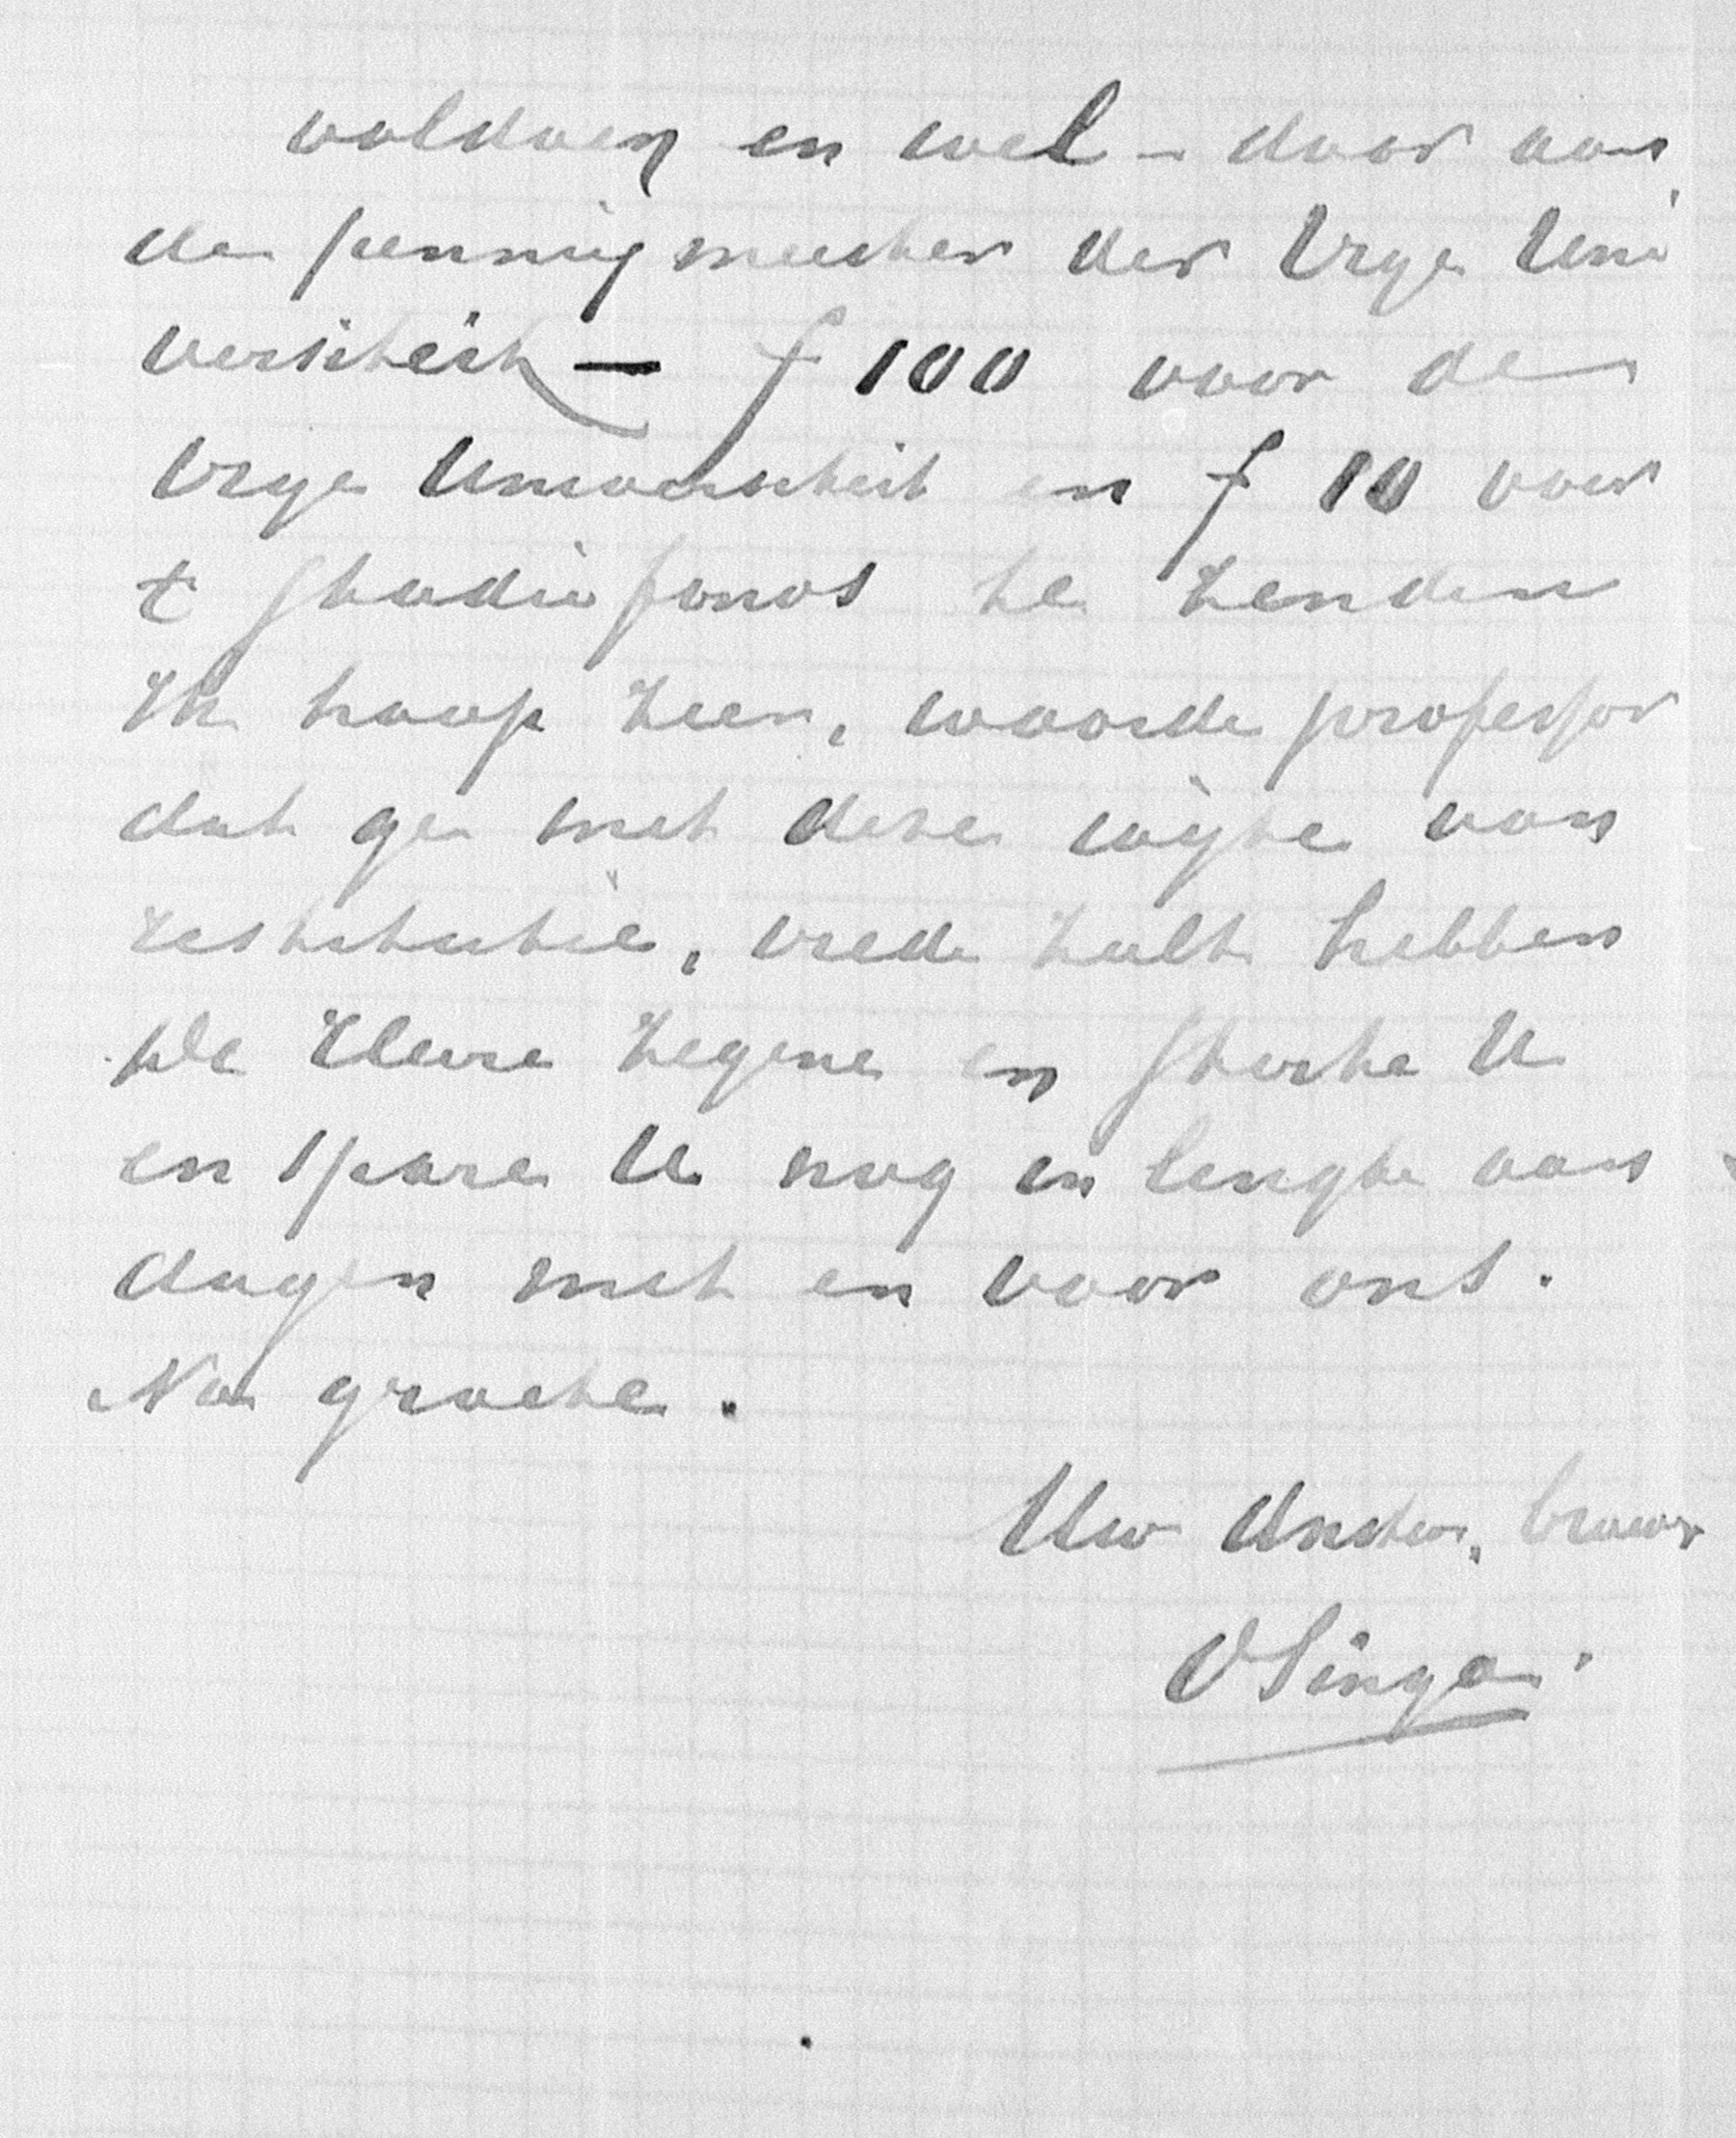 voldoen en wel – door aan
de penningmeester der Vrye Uni
versiteit – f 100 voor de
Vrye Universiteit en f 10 voor
t Studiefonds te zenden
Ik hoop zeer, waarde professor
dat ge met deze wijze van
restitutie, vrede zult hebben
De Heere zegene en sterke U
en spare U nog in lengte van
dagen met en voor ons.
Na groete.
Uw